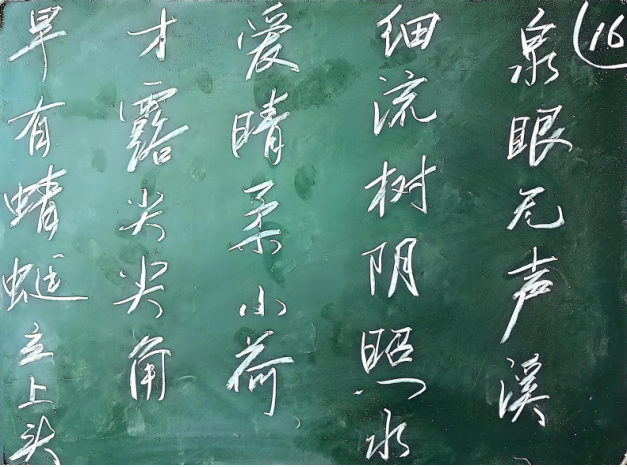 (16
泉眼无声溪
细流树阴照水
爱晴柔小荷
才露尖尖角
早有蜻蜓立上头